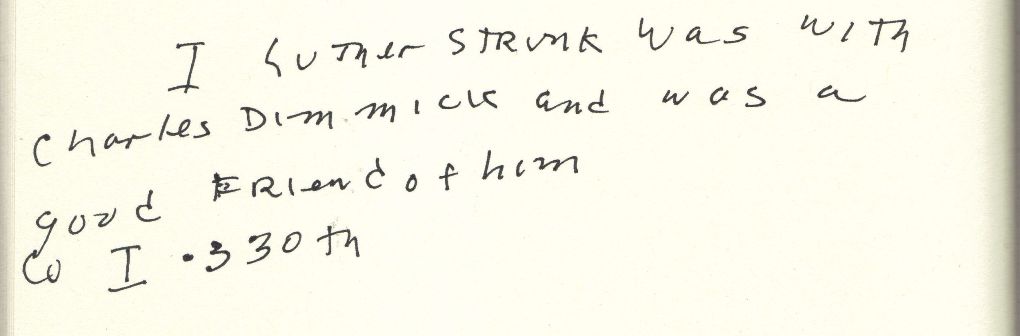 I Luther STRUNK was with
Charles Dimmick and was a
good FRiend of him
Co I . 330th